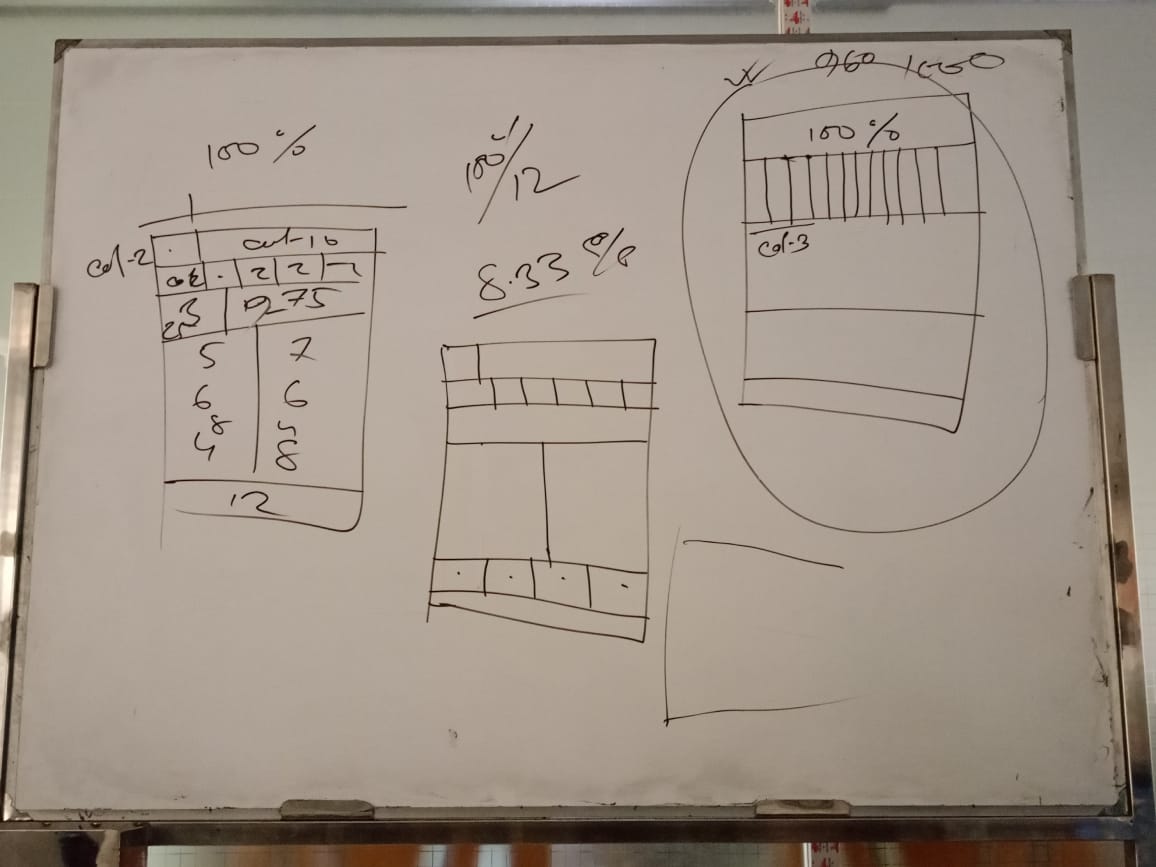 100%
col-2
col-10
col2 . 2 2 2
3 9 75
25
5 7
6 6
8 4
4 8
12
100%/12
8.33%
W 960 1000
100%
col-3